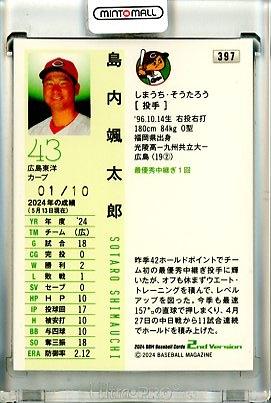 MINTⓜMALL
397
島内颯太郎
SOTARO SHIMAUCHI
43
広島東洋
カープ
01/10
2024年の成績
(5月13日現在)
YR 年度 '24
TM チーム (広)
G 試合 18
CG 完投 0
W 勝利 2
L 敗戦 1
SV セーブ 0
HP H P 10
IP 投球回 17
HB 被安打 10
BB 与四球 10
SO 奪三振 18
ERA 防御率 2.12
しまうち・そうたろう
[投手]
'96.10.14生 右投右打
180cm 84kg O型
福岡県出身
光陵高－九州共立大－
広島(19②)
最優秀中継ぎ1回
昨季42ホールドポイントでチー
ム初の最優秀中継ぎ投手に輝
いたが、オフも休まずウエート・
トレーニングを積んで、レベル
アップを図った。今季も最速
157㌔の直球で押しまくり、4月
27日の中日戦から11試合連続
でホールドを積み上げた。
2024 BBM Baseball Cards 2nd Version
©2024 BASEBALL MAGAZINE